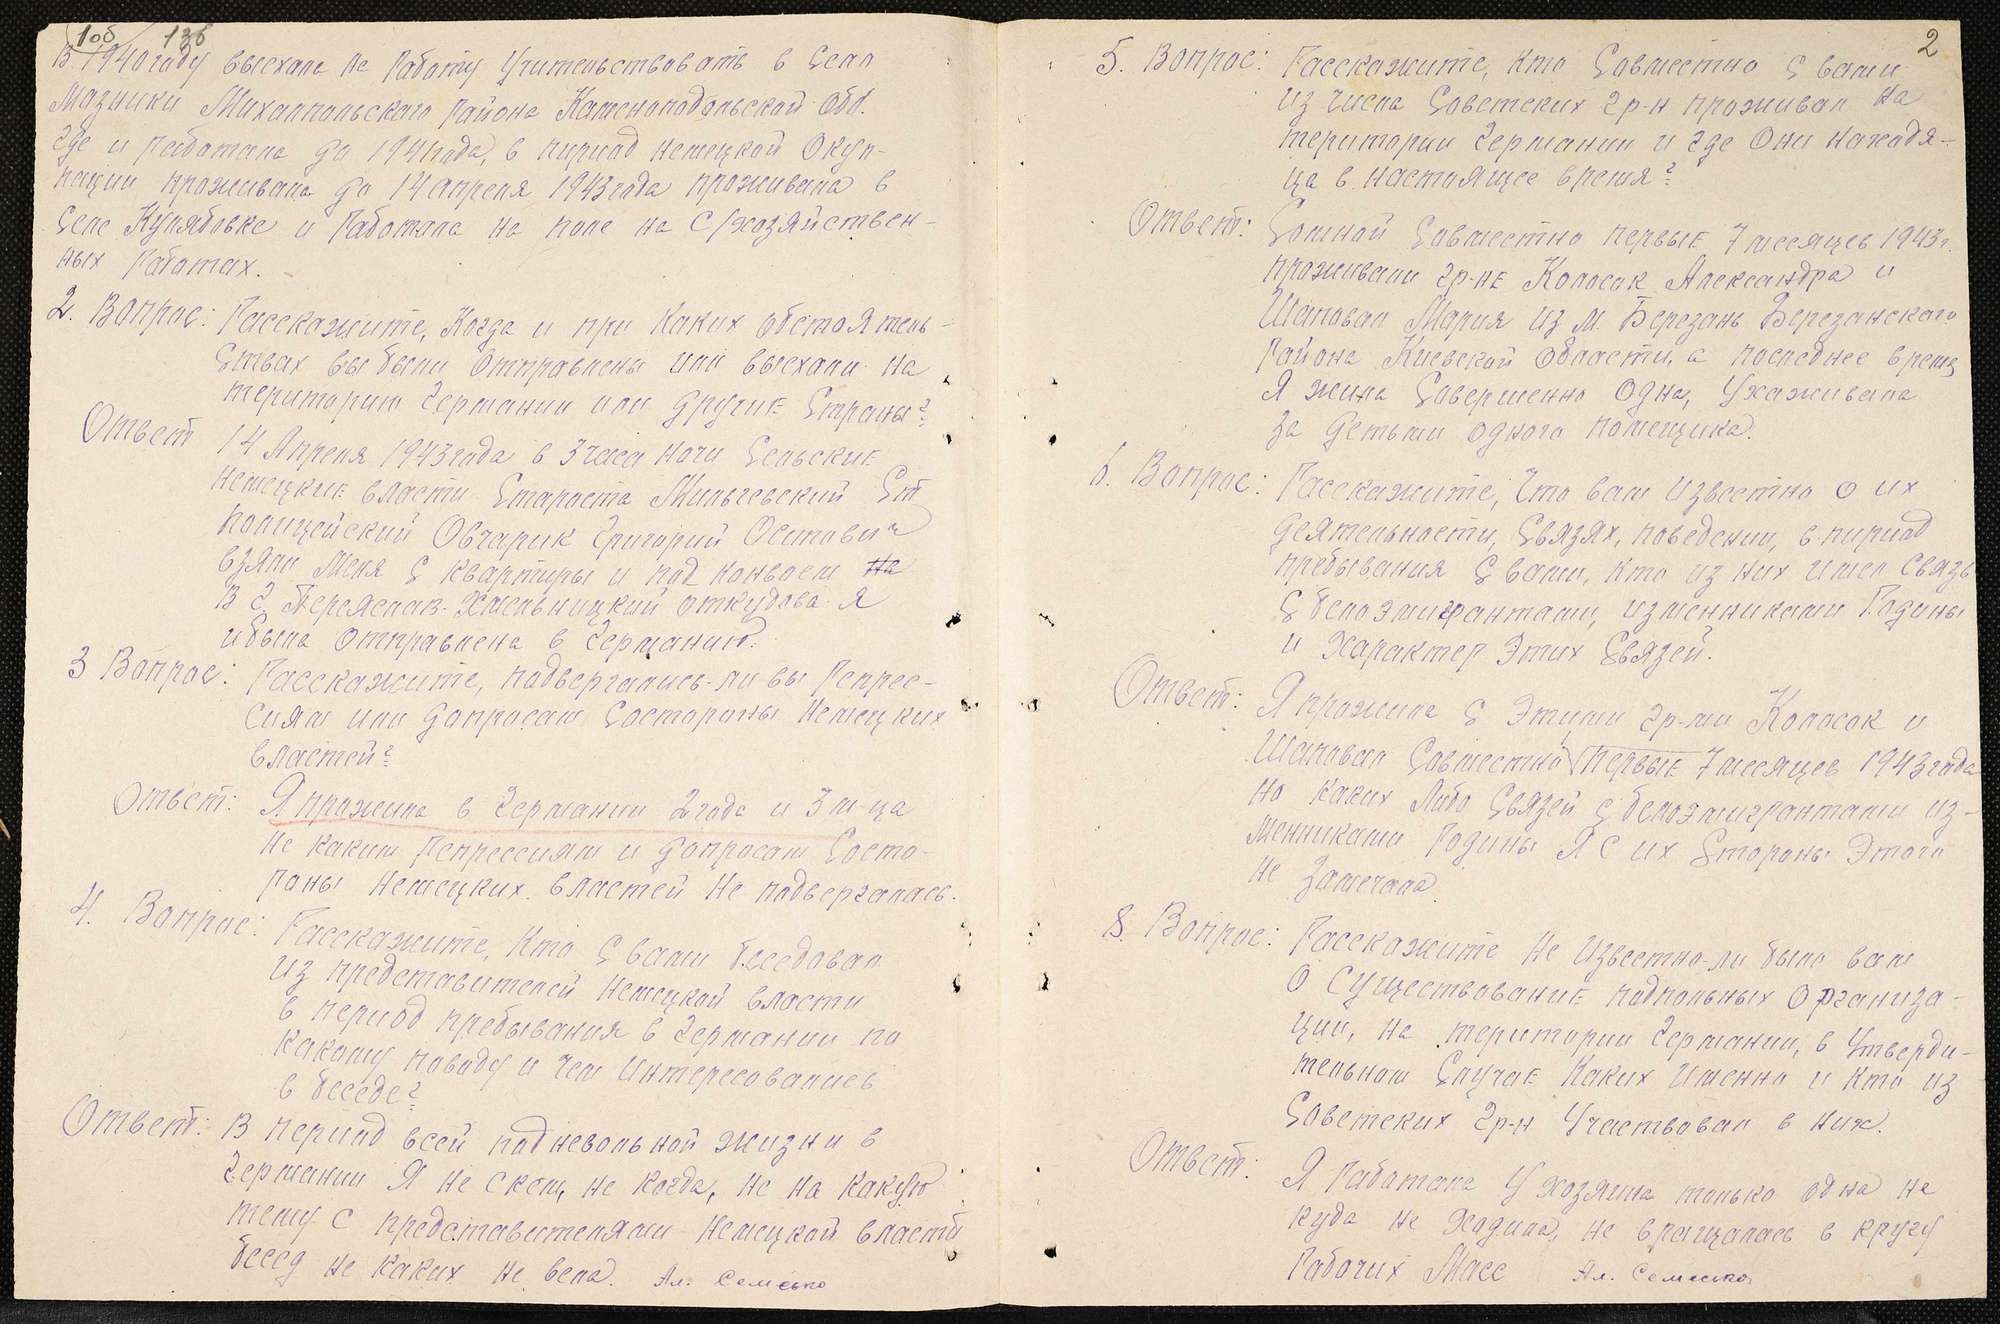 1об 13б
В 1940 году выехала на Работу Учительствовать в Село
Мазники Михалпольского Района Каменоподольской обл.
где и работала до 1941 года, в пириод немецкой Окуп-
пации проживала до 14 апреля 1943 года проживала в
Селе Кулябовке и Работала на поле на С/хозяйствен-
ных Работах.
2. Вопрос: Расскажите, Когда и при Каких обстоятель-
ствах вы были Отправлены или выехали на
територию Германии или другие Страны?
Ответ 14 Апреля 1943 года в 3 часа ночи Сельские
немецкие власти Староста Мильчевский Ст
полицейский Овчарик Григорий Осипович
взяли меня с квартиры и под конвоем на
в г. Переяслав-Хмельницкий откудова я
и была отправлена в Германию.
3 Вопрос: Расскажите, подвергались-ли вы Репрес-
сиям или допросам Состороны немецких
властей?
Ответ: Я прожила в Германии 2 года и 3 м-ца
не каким Репрессиям и допросам Состо-
роны немецких властей не подвергалась.
4. Вопрос: Расскажите, Кто с вами беседовал
из представителей немецкой власти
в период пребывания в Германии по
какому поводу и чем интересовались
в беседе?
Ответ: В период всей подневольной жизни в
Германии Я не с кем, не когда, не на какую
тему с представителями немецкой власти
бесед не каких не вела. Ал. Семесько
2
5. Вопрос: Расскажите, Кто Совместно с вами
из числа Советских гр-н проживал на
територии Германии и где Они находя-
ца в настоящее время?
Ответ: Сомной Совместно первые 7 месяцев 1943 г.
проживали гр-не Колосок Александра и
Шаповал Мария из м. Березань Березанского
Района Киевской области, а последнее время
Я жила Совершенно Одна, Ухаживала
за детьми одного помещика.
6. Вопрос: Расскажите, Что вам известно о их
деятельности, Связях, поведении, в пириод
пребывания с вами, Кто из них имел Связь
с белоэмигрантами, изменниками Родины
и Характер Этих Связей.
Ответ: Я прожила с Этими гр-ми Колосок и
Шаповал Совместно первые 7 месяцев 1943 года
но каких либо Связей с белоэмигрантами из-
менниками Родины Я с их Стороны Этого
не замечала.
8. Вопрос: Расскажите не Известно-ли было вам
О Существование подпольных Организа-
ций, на територии Германии, в Утверди-
тельном Случае Каких Именно и Кто из
Советских гр-н Участвовал в них.
Ответ: Я Работала У хозяина только одна не
куда не Ходила, не вращалась в кругу
Рабочих Масс Ал. Семесько